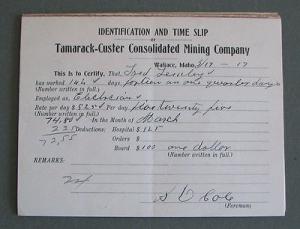 IDENTIFICATION AND TIME SLIP
OF
Tamarack-Custer Consolidated Mining Company
Wallace, Idaho, 3/17-17
This is to Certify, That Fred
has worked 14¼ days
(Number written in full.)
Employed as Electrician
Rate per day $5.25
(Number written in full.)
74.80 In the Month of March
2.25 Deductions: Hospital $1.25
72.55 Orders $
Board $1.00 one dollar
(Number written in full.)
REMARKS:
(Foreman)